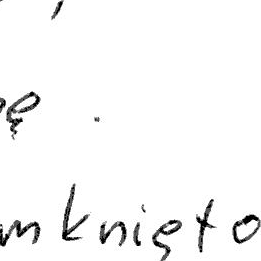 ę.
mknięto